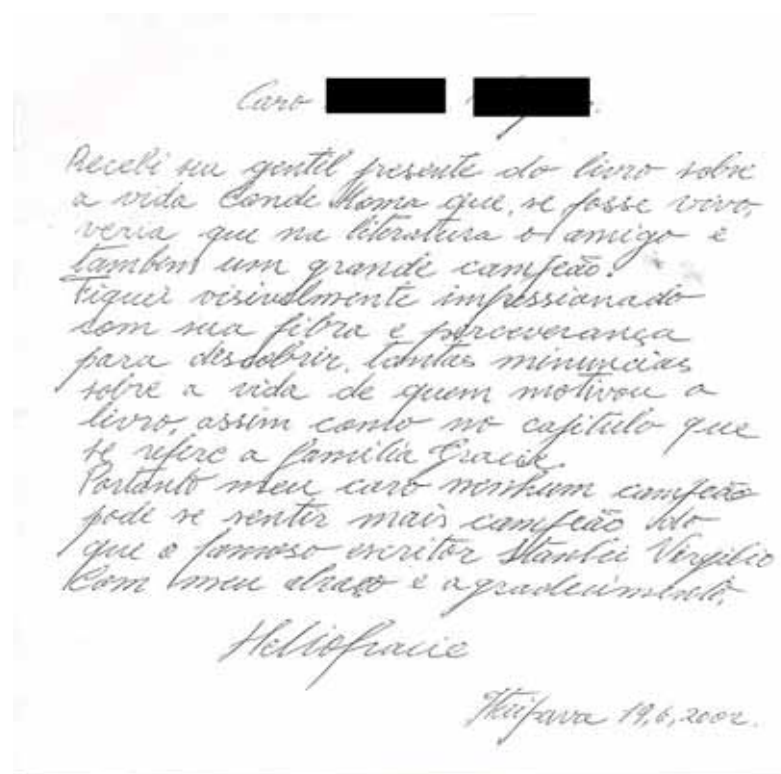 Caro
Recebi seu gentil presente do livro sobre
a vida Conde Koma que, se fosse vivo,
veria que na literatura o amigo é
também um grande campeão.
Fiquei visivelmente impressionado
com sua fibra e perceverança
para descobrir, tantas minuncias
sobre a vida de quem motivou o
livro, assim como no capitulo que
se refere a familia Gracie.
Portanto meu caro nenhum campeão
pode se sentir mais campeão do
que o famoso escritor Stanlei Virgilio
Com meu abraço e agradecimento,
Helio Gracie
Itaipava 19,6,2002.